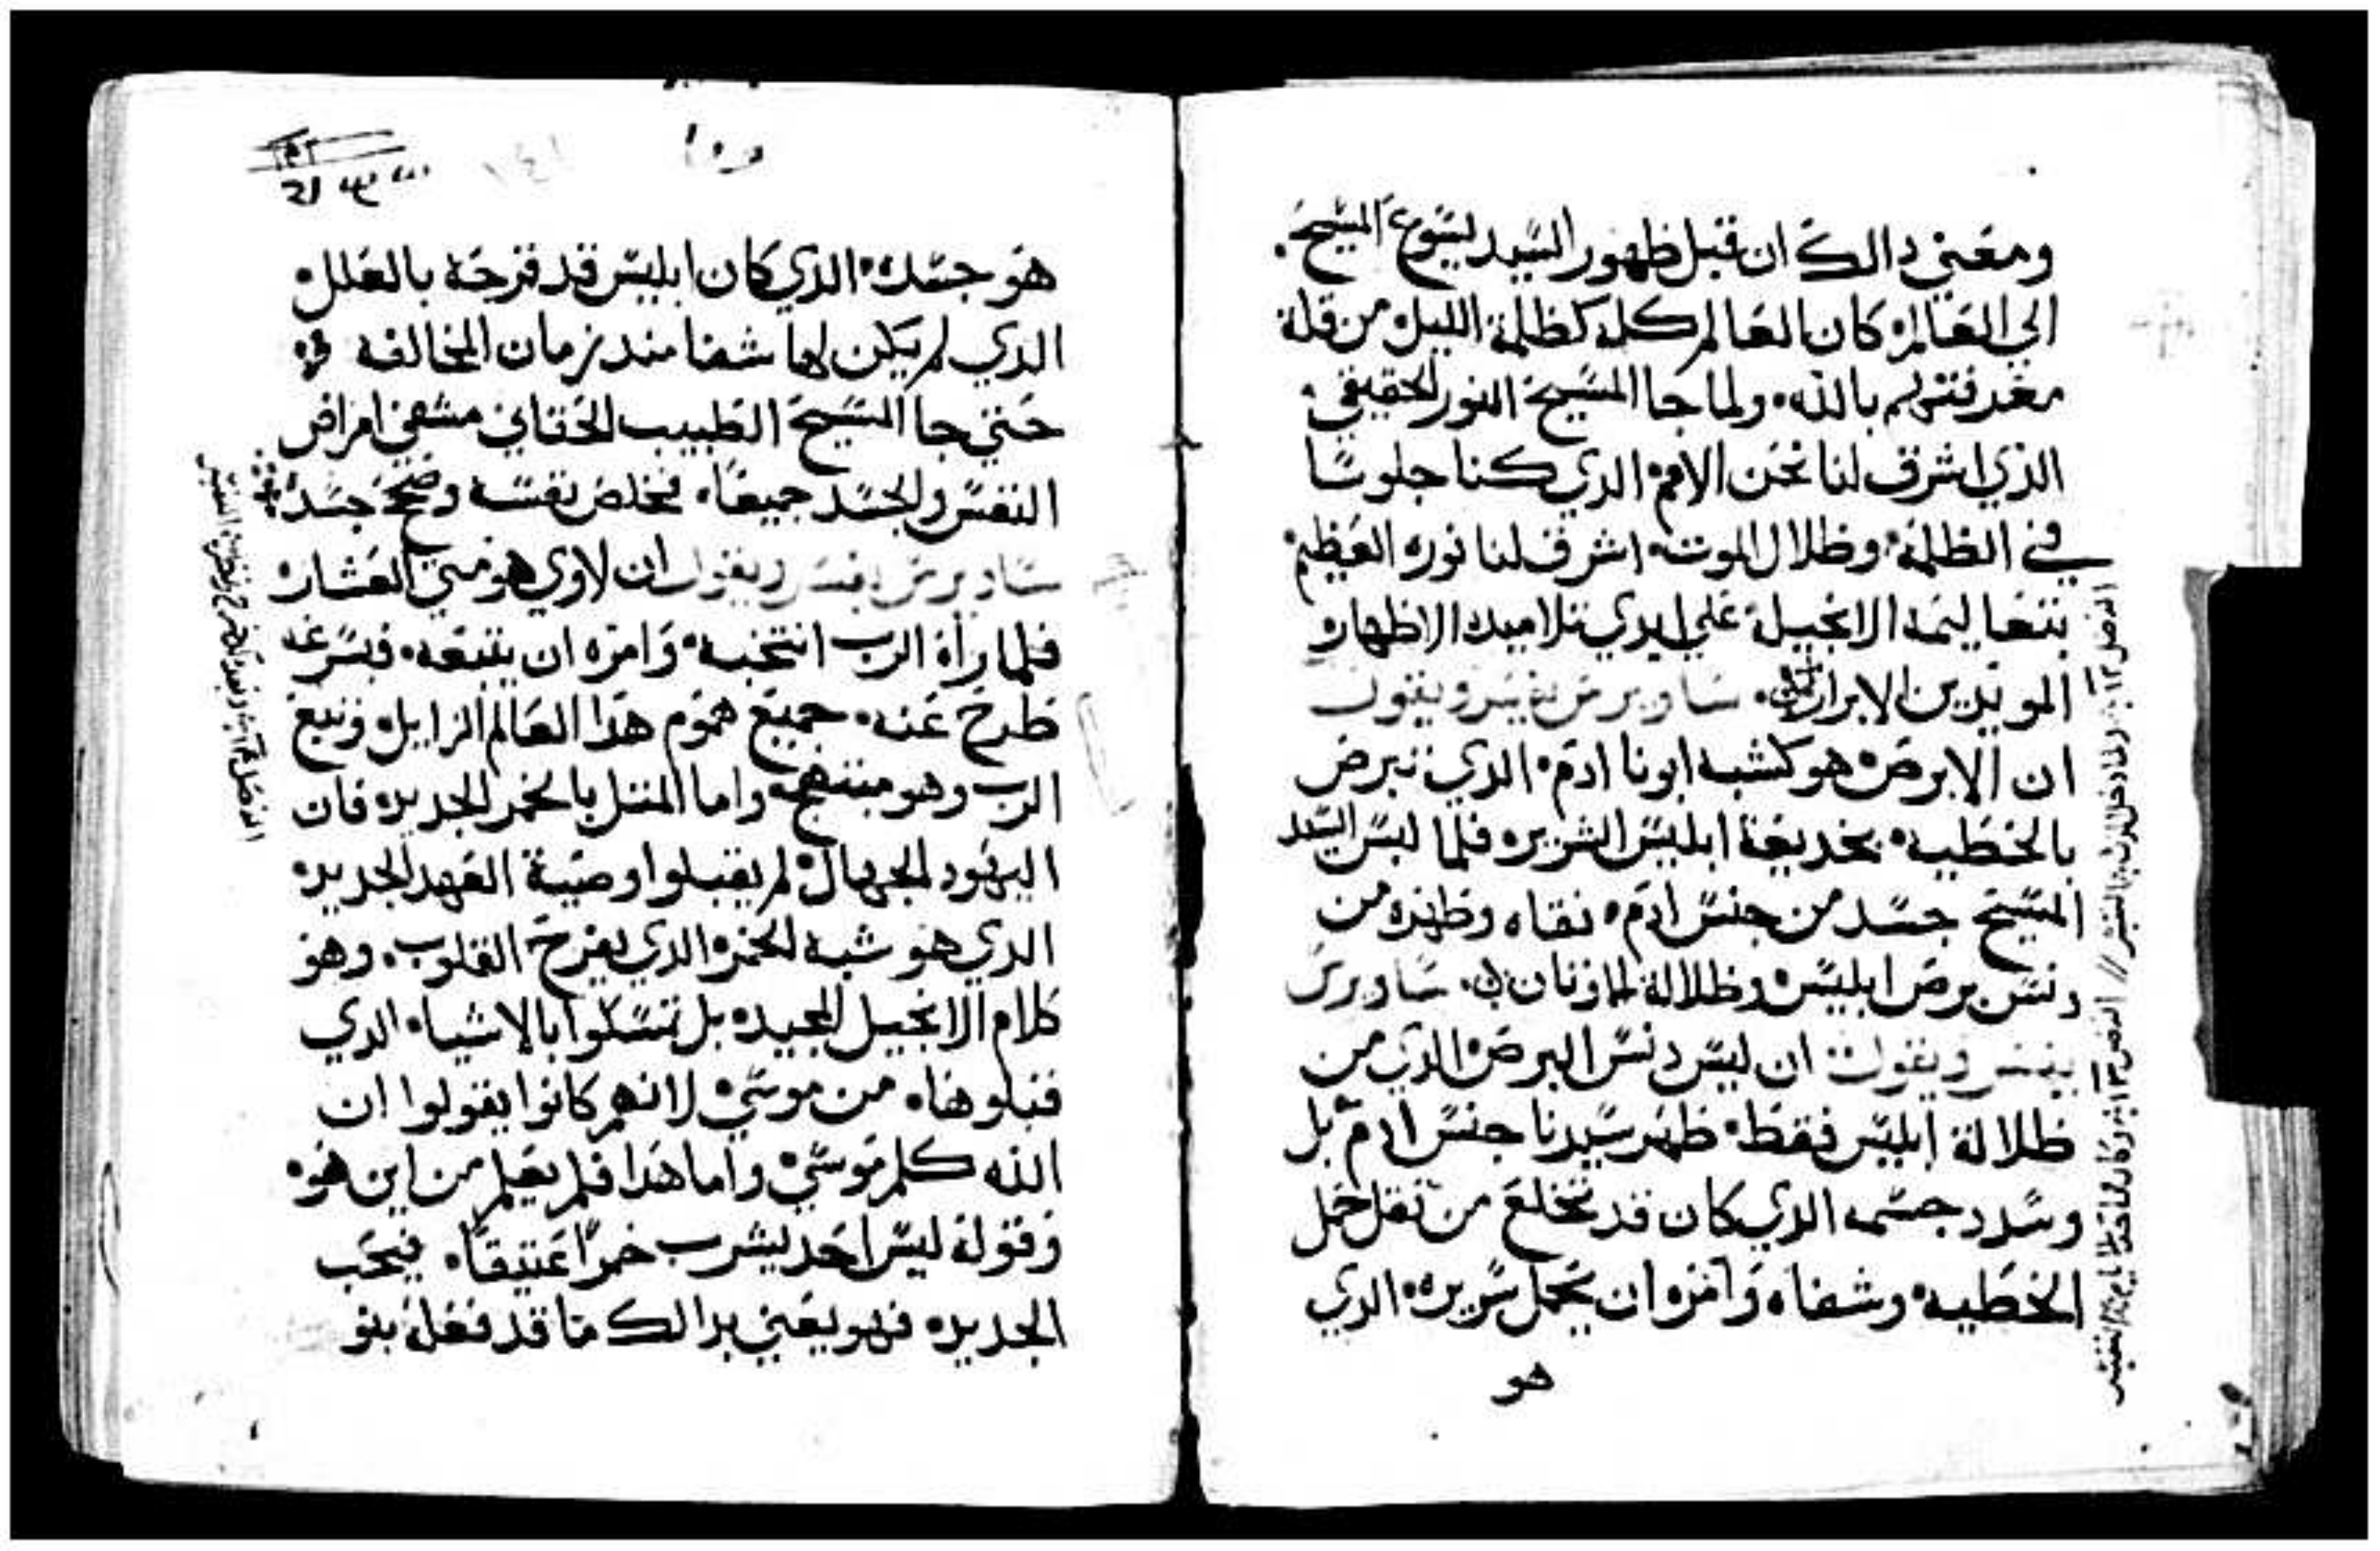 ومعني دالك ان قبل ظهور السيد يسوع المسيح
الي العالم كان العالم كله كظلمة الليل من قلة
معرفتهم بالله ولما جا المسيح النور الحقيقي
الذي اشرق لنا نحن الامم الذي كنا جلوسا
في الظلمة وظلال الموت اشرق لنا نوره العظيم
بتعاليمه الانجيلة علي ايدي تلاميده الاطهار
المويدين الابرار ساويرس يفسر ويقول
ان الابرص هو كشبه ابونا ادم الذي تبرص
بالخطيه بخديعة ابليس الشرير فلما لبس السيد
المسيح جسد من جنس ادم نقاه وطهره من
دنس برص ابليس وظلالة الاوتان ساويرس
يفسر ويقول ان ليس دنس البرص الذي من
ظلالة ابليس فقط طهر سيدنا جنس ادم بل
وشدد جسمه الذي كان قد تخلع من تقل حمل
الخطيه وشفاه وامره ان يحمل سريره الذي
هو
هو جسده الذي كان ابليس قد قرحه بالعلل
الذي لم يكن لها شفا مند زمان المخالفه
حتي جا المسيح الطبيب الحقاني مشفي امراض
النفس والجسد جميعا فخلص نفسه وصحح جسده
ساويرس يفسر ويقول ان لاوي هو متي العشار
فلما راه الرب انتخبه وامره ان يتبعه فبسرعه
طرح عنه جميع هموم هذا العالم الزايل وتبع
الرب وهو مبتهج واما المتل بالخمر الجديده فان
اليهود الجهال لم يقبلوا وصية العهد الجديده
الدي هو شبه الخمر الدي يفرح القلوب وهو
كلام الانجيل المجيده بل تمسكوا بالاشياء الدي
قبلوها من موسي لانهم كانوا يقولوا ان
الله كلم موسي واما هدا فلم يعلم من اين هو
وقوله ليس احد يشرب خمرا عتيقا فيحب
الجديده فهو يعني بدالك ما قد فعله بنو